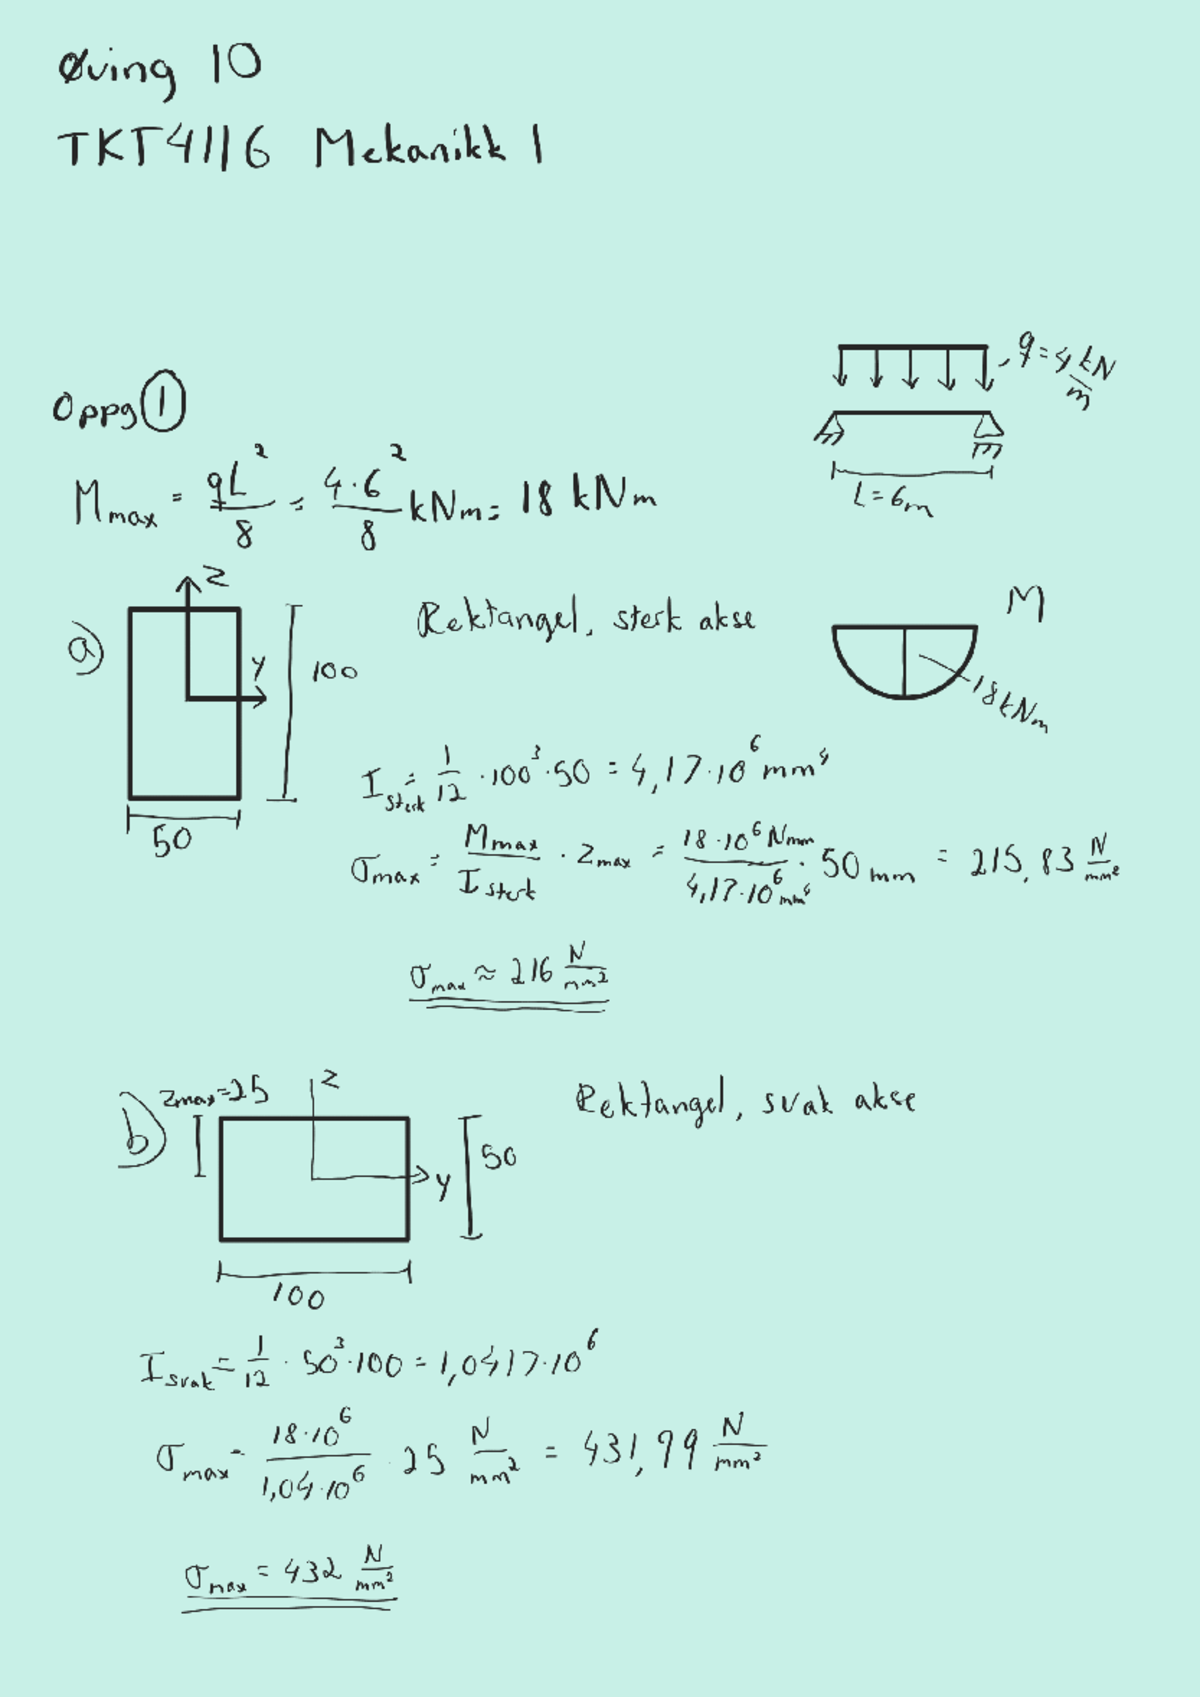 Øving 10
TKT4116 Mekanikk 1
q=4 kN/m
Oppg ①
L=6m
M_max = qL²/8 = 4·6²/8 kNm = 18 kNm
a)
z
y
100
50
Rektangel, sterk akse
M
18kNm
I_sterk = 1/12 ·100³·50 = 4,17·10⁶ mm⁴
σ_max = M_max/I_sterk · z_max = 18·10⁶ Nmm/4,17·10⁶ mm⁴ · 50 mm = 215,83 N/mm²
σ_max ≈ 216 N/mm²
b)
z_max=25
z
y
50
100
Rektangel, svak akse
I_svak = 1/12 · 50³·100 = 1,0417·10⁶
σ_max = 18·10⁶/1,04·10⁶ · 25 N/mm² = 431,99 N/mm²
σ_max = 432 N/mm²